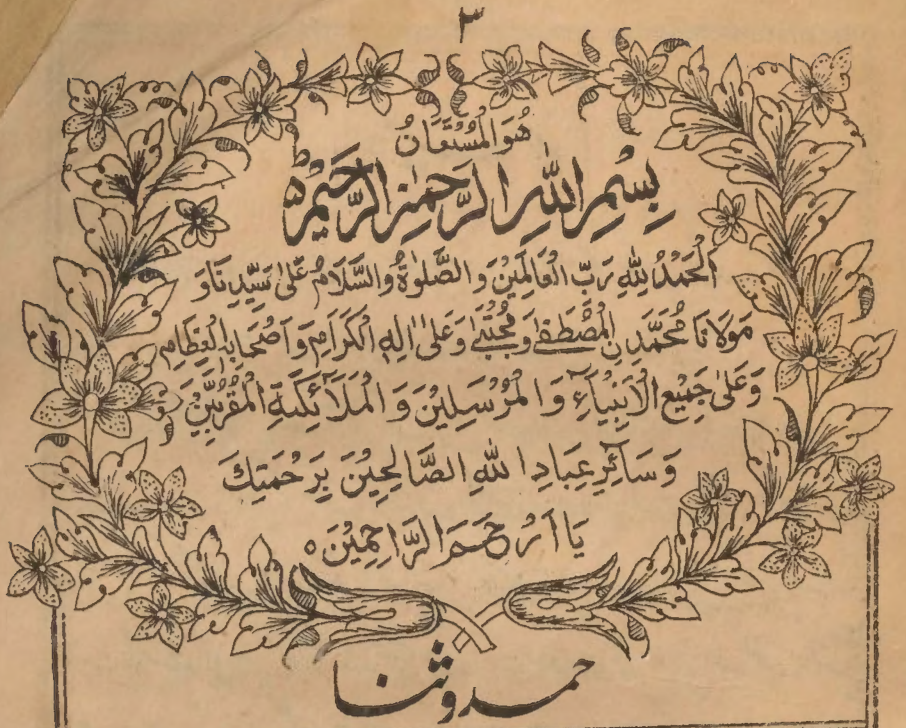 ۳
هُوَ الْمُسْتَعَانُ
بِسْمِ اللّٰهِ الرَّحْمٰنِ الرَّحِيْمِ۝
اَلْحَمْدُ لِلّٰهِ رَبِّ الْعَالَمِيْنَ وَالصَّلٰوةُ وَالسَّلَامُ عَلٰى سَيِّدِنَا وَ
مَوْلَانَا مُحَمَّدِنِ الْمُصْطَفٰى وَمُجْتَبٰى وَعَلٰى اٰلِهِ الْكَرَامِ وَاَصْحَابِهِ الْعِظَامِ
وَعَلٰى جَمِيْعِ الْاَنْبِيَآءِ وَالْمُرْسَلِيْنَ وَالْمَلَآئِكَةِ الْمُقَرَّبِيْنَ
وَسَآئِرِ عِبَادِ اللّٰهِ الصَّالِحِيْنَ بِرَحْمَتِكَ
يَا اَرْحَمَ الرَّاحِمِيْنَ۝
حمد و ثنا